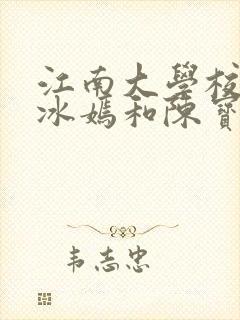 江南大學校
冰嫣和陳寶
韦志忠